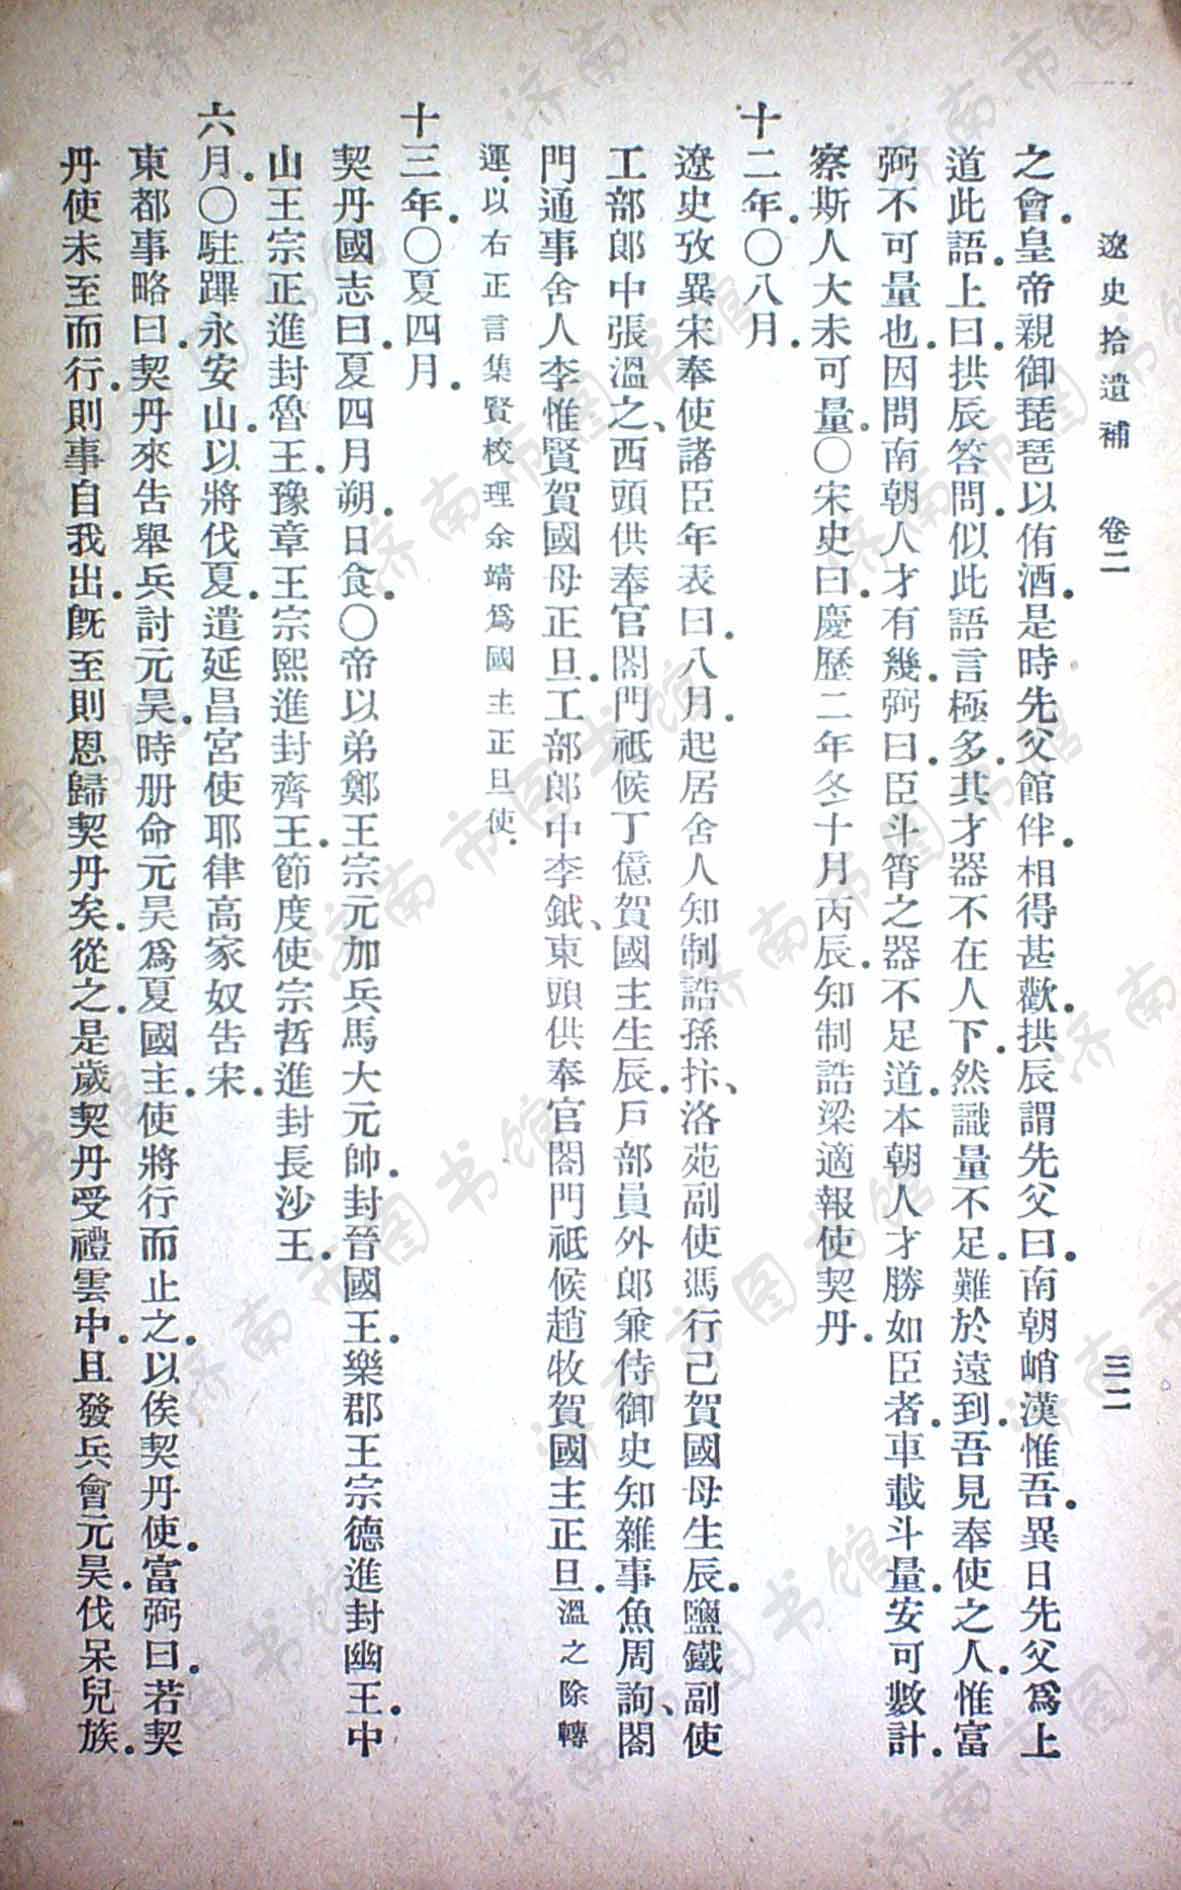 遼史拾遺補　卷二　三二
之會。皇帝親御琵琶以侑酒。是時先父館伴。相得甚歡。拱辰謂先父曰。南朝峭漢惟吾。異日先父爲上
道此語。上曰。拱辰答問。似此語言極多。其才器不在人下。然識量不足。難於遠到。吾見奉使之人。惟富
弼不可量也。因問南朝人才有幾。弼曰。臣斗筲之器。不足道。本朝人才勝如臣者。車載斗量。安可數計。
察斯人大未可量。〇宋史曰。慶歷二年冬十月丙辰。知制誥梁適報使契丹。
十二年。〇八月。
遼史攷異宋奉使諸臣年表曰。八月。起居舍人知制誥孫抃、洛苑副使馮行己賀國母生辰。鹽鐵副使
工部郎中張溫之、西頭供奉官閤門祗候丁億賀國主生辰。戶部員外郎兼侍御史知雜事魚周詢、閤
門通事舍人李惟賢賀國母正旦。工部郎中李鉞、東頭供奉官閤門祗候趙牧賀國主正旦。溫之除轉
運。以右正言集賢校理余靖爲國主正旦使。
十三年。〇夏四月。
契丹國志曰。夏四月朔。日食。〇帝以弟鄭王宗元加兵馬大元帥。封晉國王。樂郡王宗德進封幽王。中
山王宗正進封魯王。豫章王宗熙進封齊王。節度使宗哲進封長沙王。
六月。〇駐蹕永安山。以將伐夏。遣延昌宮使耶律高家奴告宋。
東都事略曰。契丹來告舉兵討元昊。時册命元昊爲夏國主。使將行而止之。以俟契丹使。富弼曰。若契
丹使未至而行。則事自我出。旣至則恩歸契丹矣。從之。是歲契丹受禮雲中。且發兵會元昊。伐呆兒族。
济南市图书馆